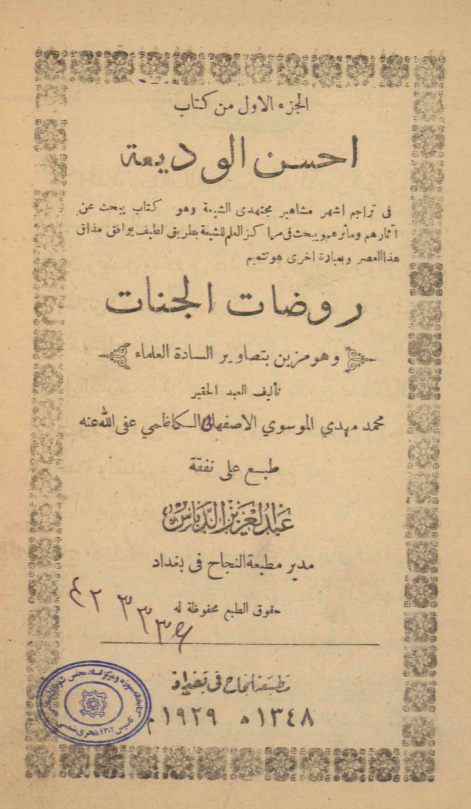 الجزء الاول من كتاب
احسن الوديعة
فى تراجم اشهر مشاهير مجتهدى الشيعة وهو كتاب يبحث عن
آثارهم ومآثرهم ويبحث فى مراكز العلم للشيعة بطريق لطيف يوافق مذاق
هذا العصر وبعبارة اخرى هو تتميم
روضات الجنات
وهو مزين بتصاوير السادة العلماء
تأليف العبد الحقير
محمد مهدي الموسوي الاصفهاني الكاظمي عفى الله عنه
طبع على نفقة
عبد العزيز الدباس
مدير مطبعة النجاح فى بغداد
حقوق الطبع محفوظة له
مطبعة النجاح فى بغداد
١٣٤٨ ه ١٩٢٩ م